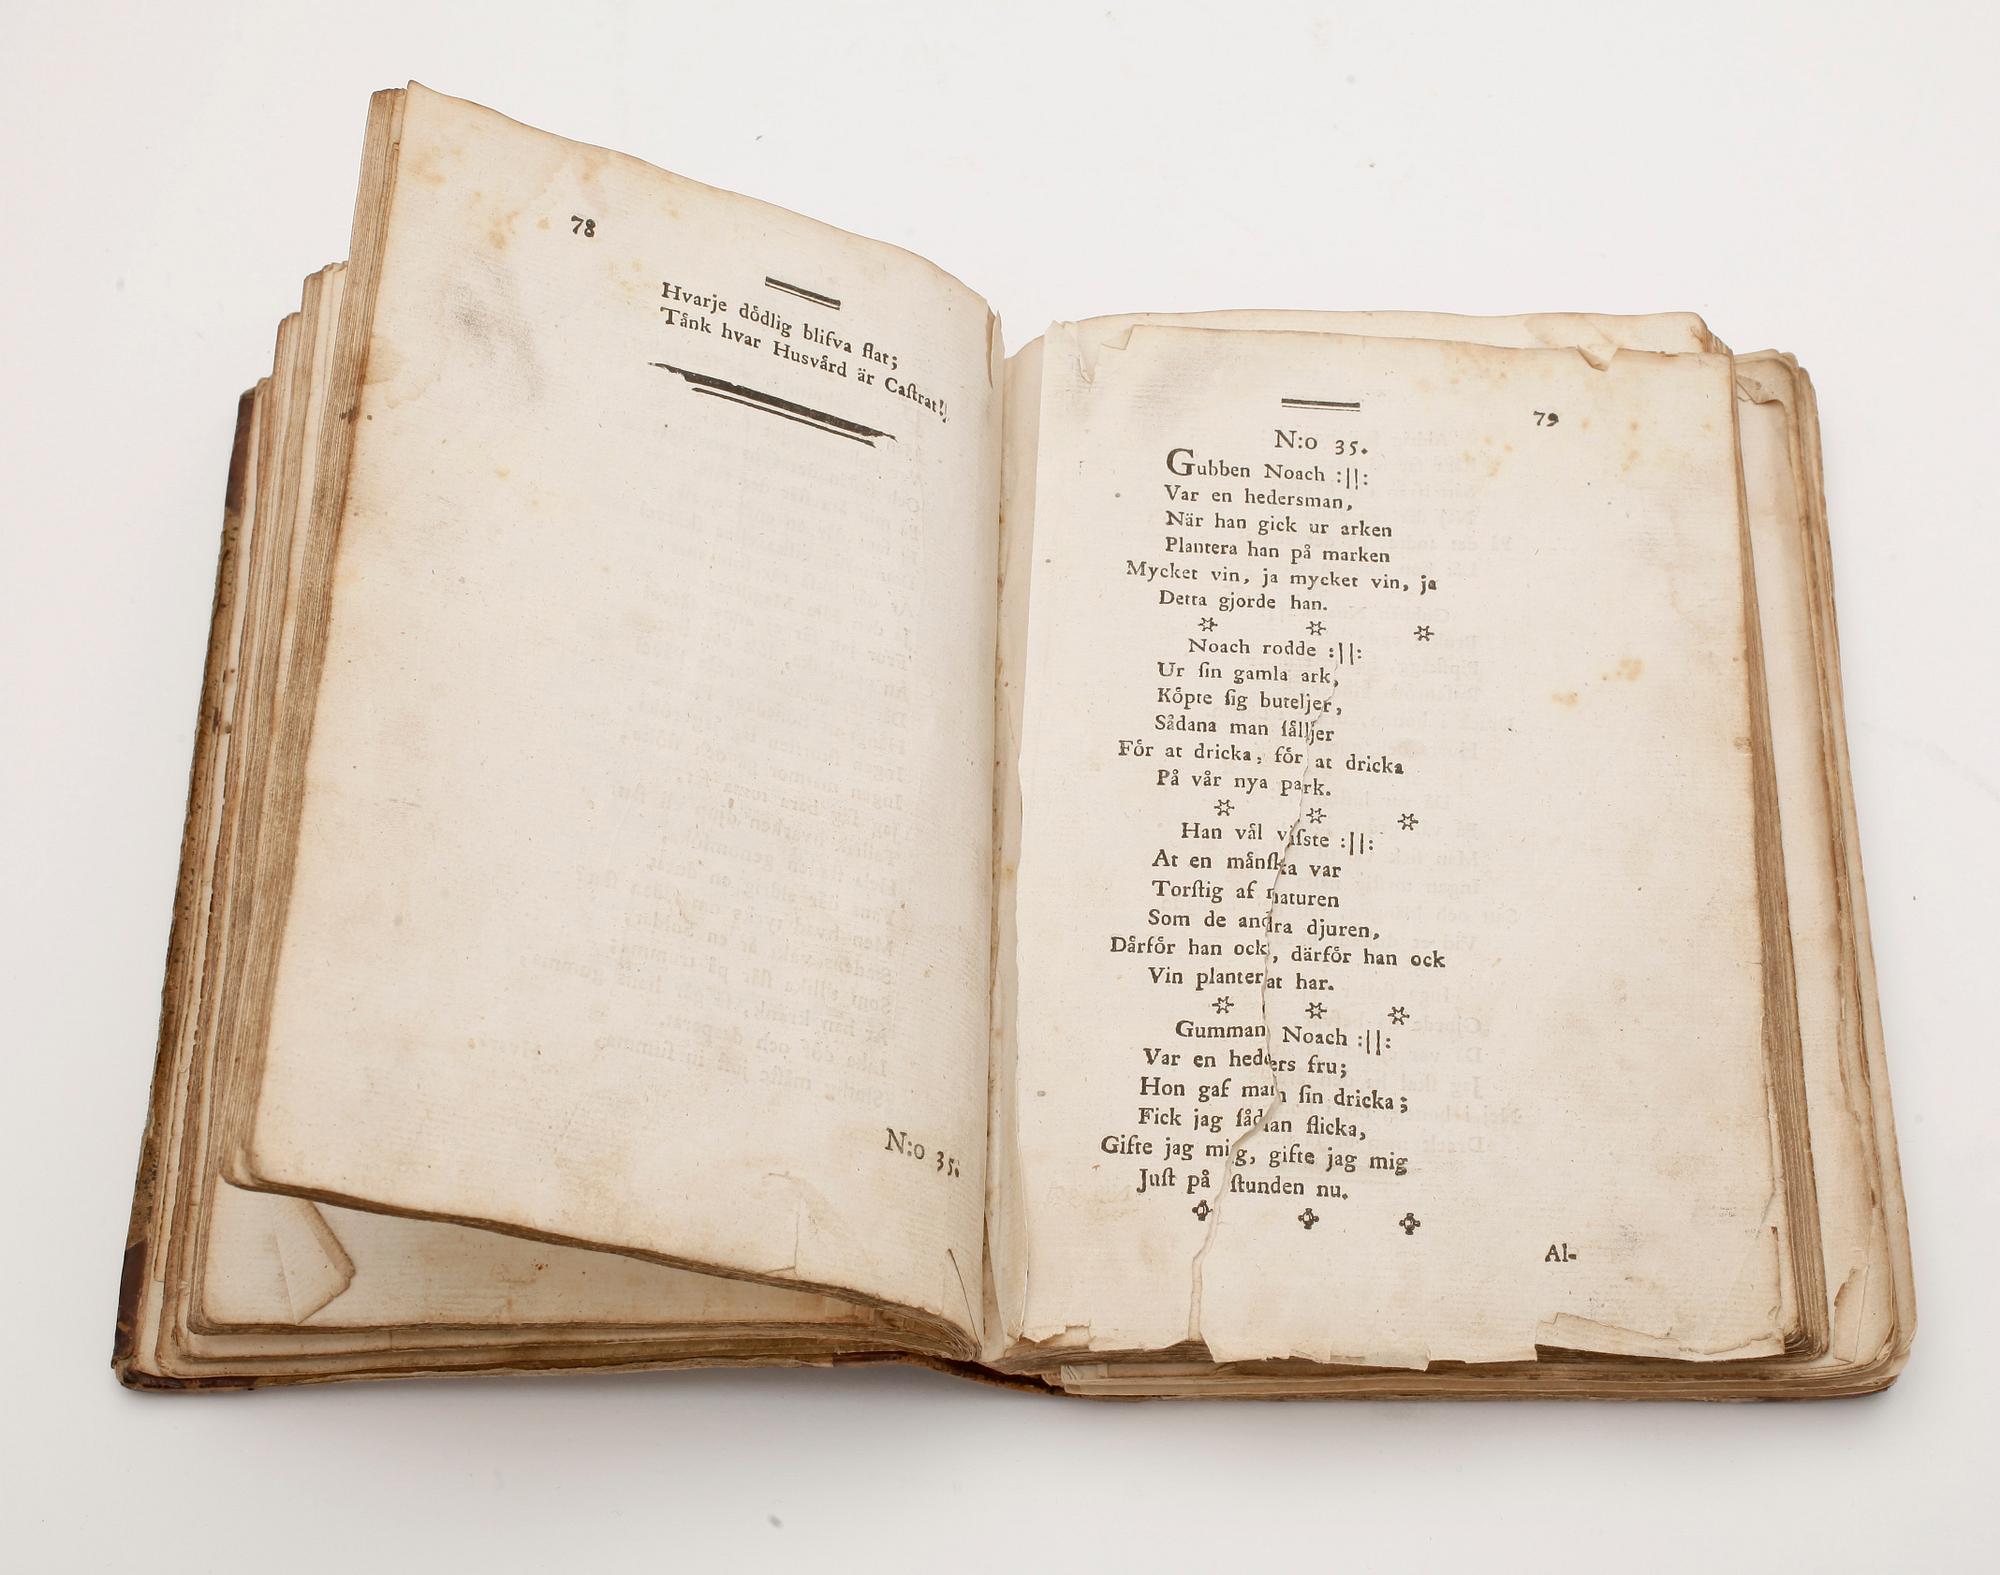 78
Hvarje dödlig blifva flat;
Tånk hvar Husvård är Caſtrat!
N:o 35.
79
N:o 35.
Gubben Noach :||:
Var en hedersman,
När han gick ur arken
Plantera han på marken
Mycket vin, ja mycket vin, ja
Detta gjorde han.
Noach rodde :||:
Ur ſin gamla ark,
Köpte ſig buteljer,
Sådana man ſåljer
För at dricka, för at dricka
På vår nya park.
Han vål viſste :||:
At en månſka var
Torſtig af naturen
Som de andra djuren,
Dårför han ock, därför han ock
Vin planterat har.
Gumman Noach :||:
Var en heders fru;
Hon gaf man ſin dricka;
Fick jag ſådan flicka,
Gifte jag mig, gifte jag mig
Juſt på ſtunden nu.
Al-